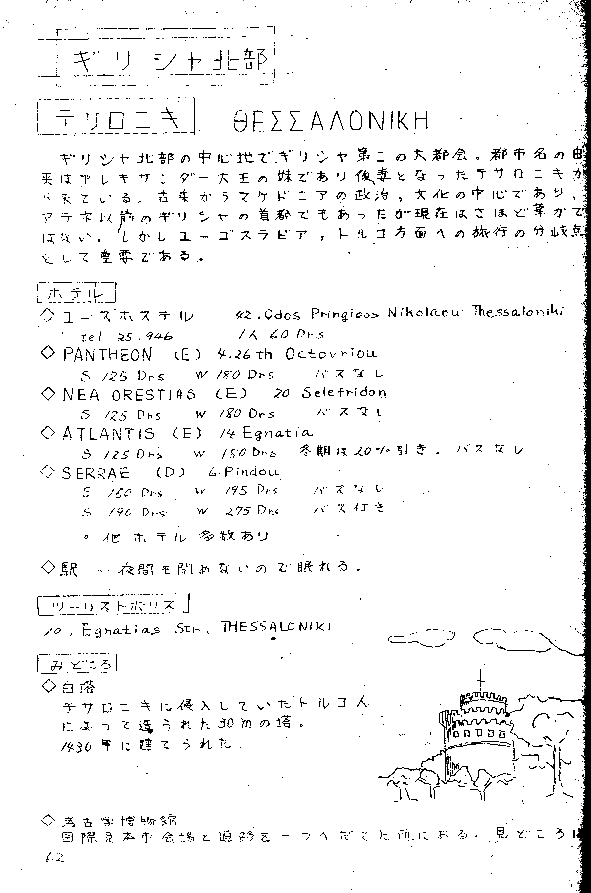 ギリシャ北部
テサロニキ ΘΕΣΣΑΛΟΝΙΚΗ
ギリシャ北部の中心地でギリシャ第二の大都会。都市名の由
来はアレキサンダー大王の妹であり後妻となったテサロニキか
ら来ている。古来からマケドニアの政治,文化の中心であり、
アテネ以前のギリシャの首都でもあったが現在はさほど華かで
はない。しかしユーゴスラビア,トルコ方面への旅行の分岐点
として重要である。
ホテル
◇ユースホステル 42. Odos Pringicos Nikolaou Thessaloniki
tel 25.946 1人 60 Drs
◇PANTHEON (E) 4.26th Octovriou
S 125 Drs W 180 Drs バスなし
◇NEA ORESTIAS (E) 20 Selefridon
S 125 Drs W 180 Drs バスなし
◇ATLANTIS (E) 14 Egnatia
S 125 Drs W 180 Drs 冬期は20%引き. バスなし
◇SERRAE (D) 6.Pindou
S 160 Drs W 195 Drs バスなし
S 190 Drs W 275 Drs バス付き
。他ホテル多数あり
◇駅 … 夜間も閉めないので眠れる.
ツーリストポリス
10. Egnatias Str. THESSALONIKI
みどころ
◇白塔
テサロニキに侵入していたトルコ人
によって造られた30mの塔。
1430年に建てられた.
◇考古学博物館
国際見本市会場と道路を一つへだてた所にある. 見どころは
62